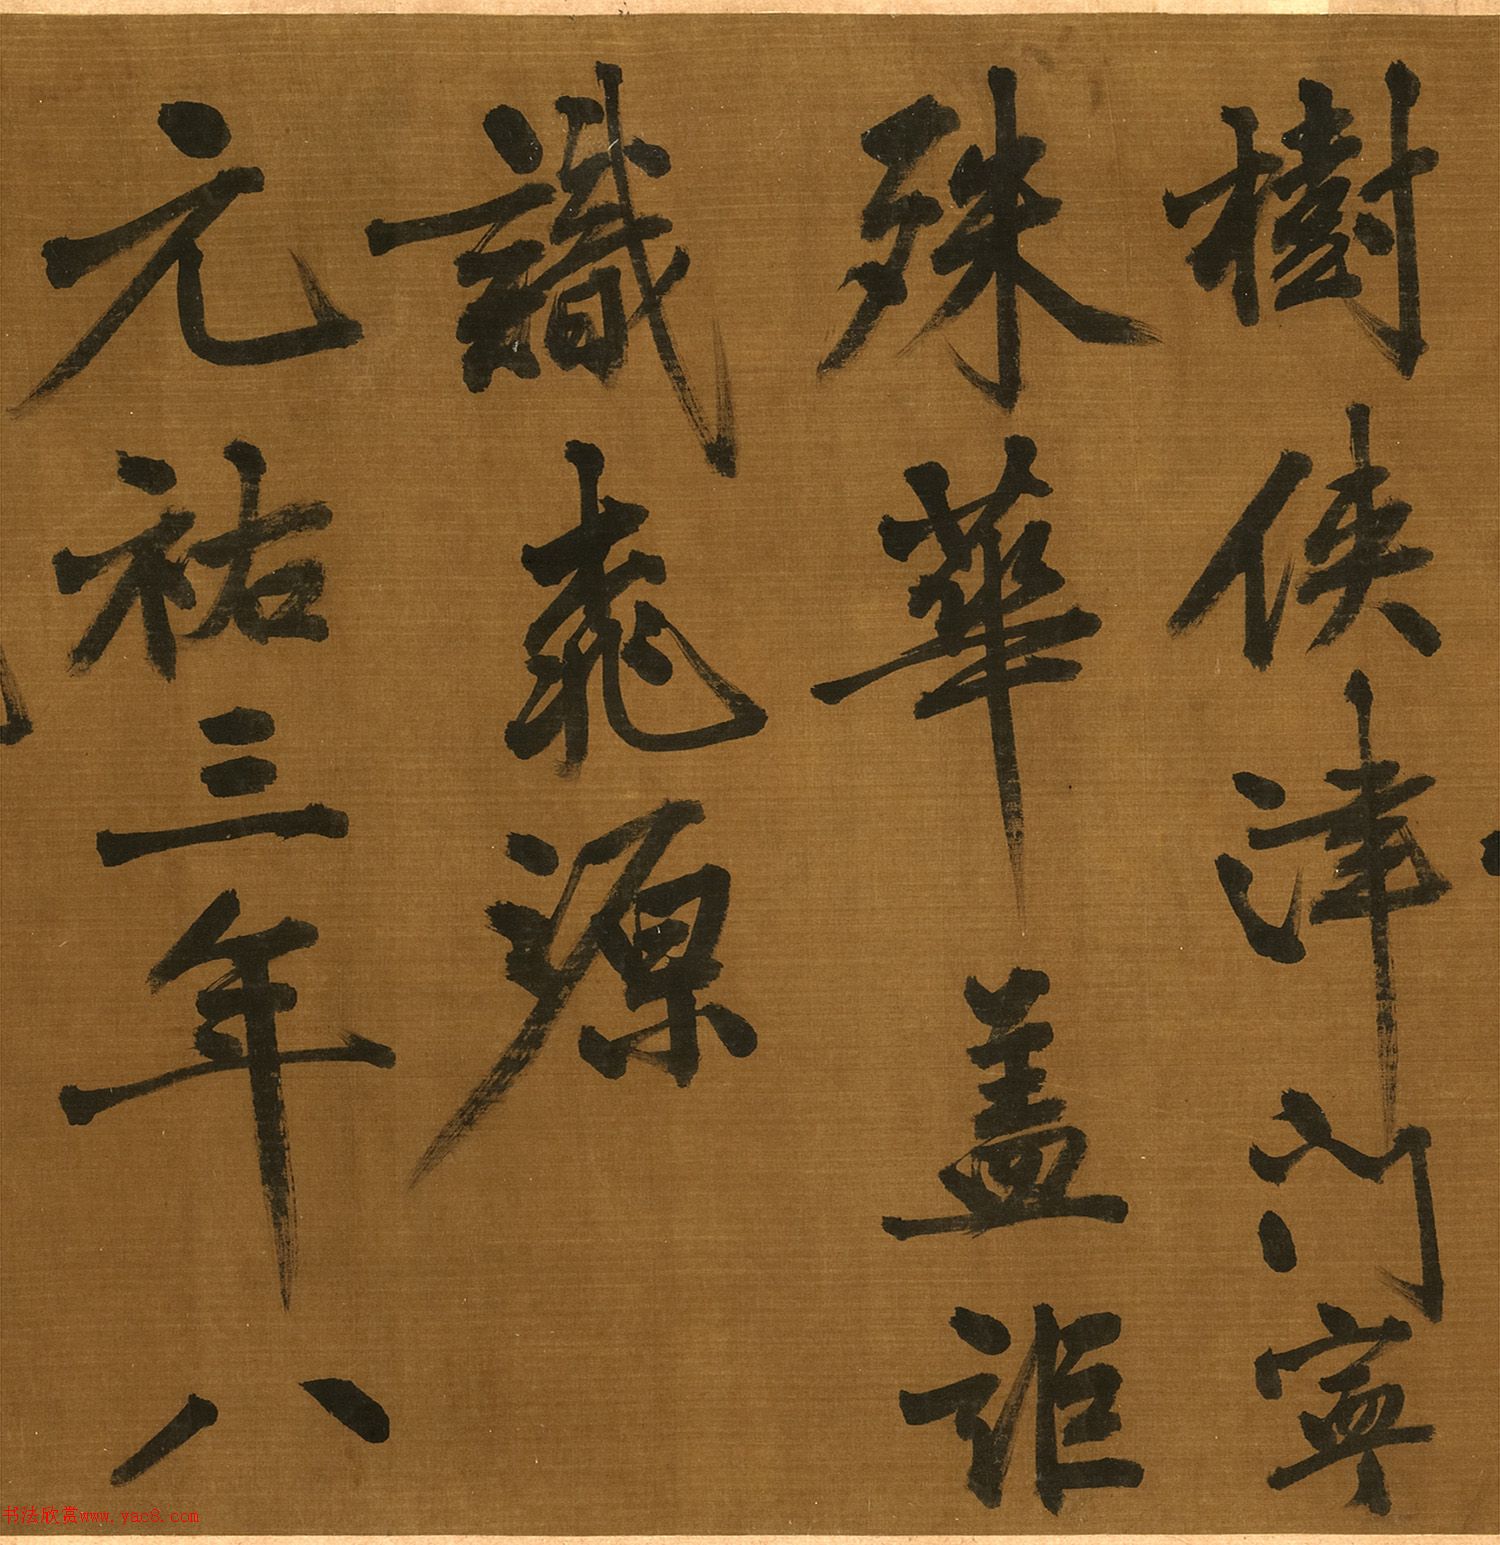 樹俠津門寧
殊華蓋詎
識桃源
元祐三年八
书法欣赏www.yac8.com